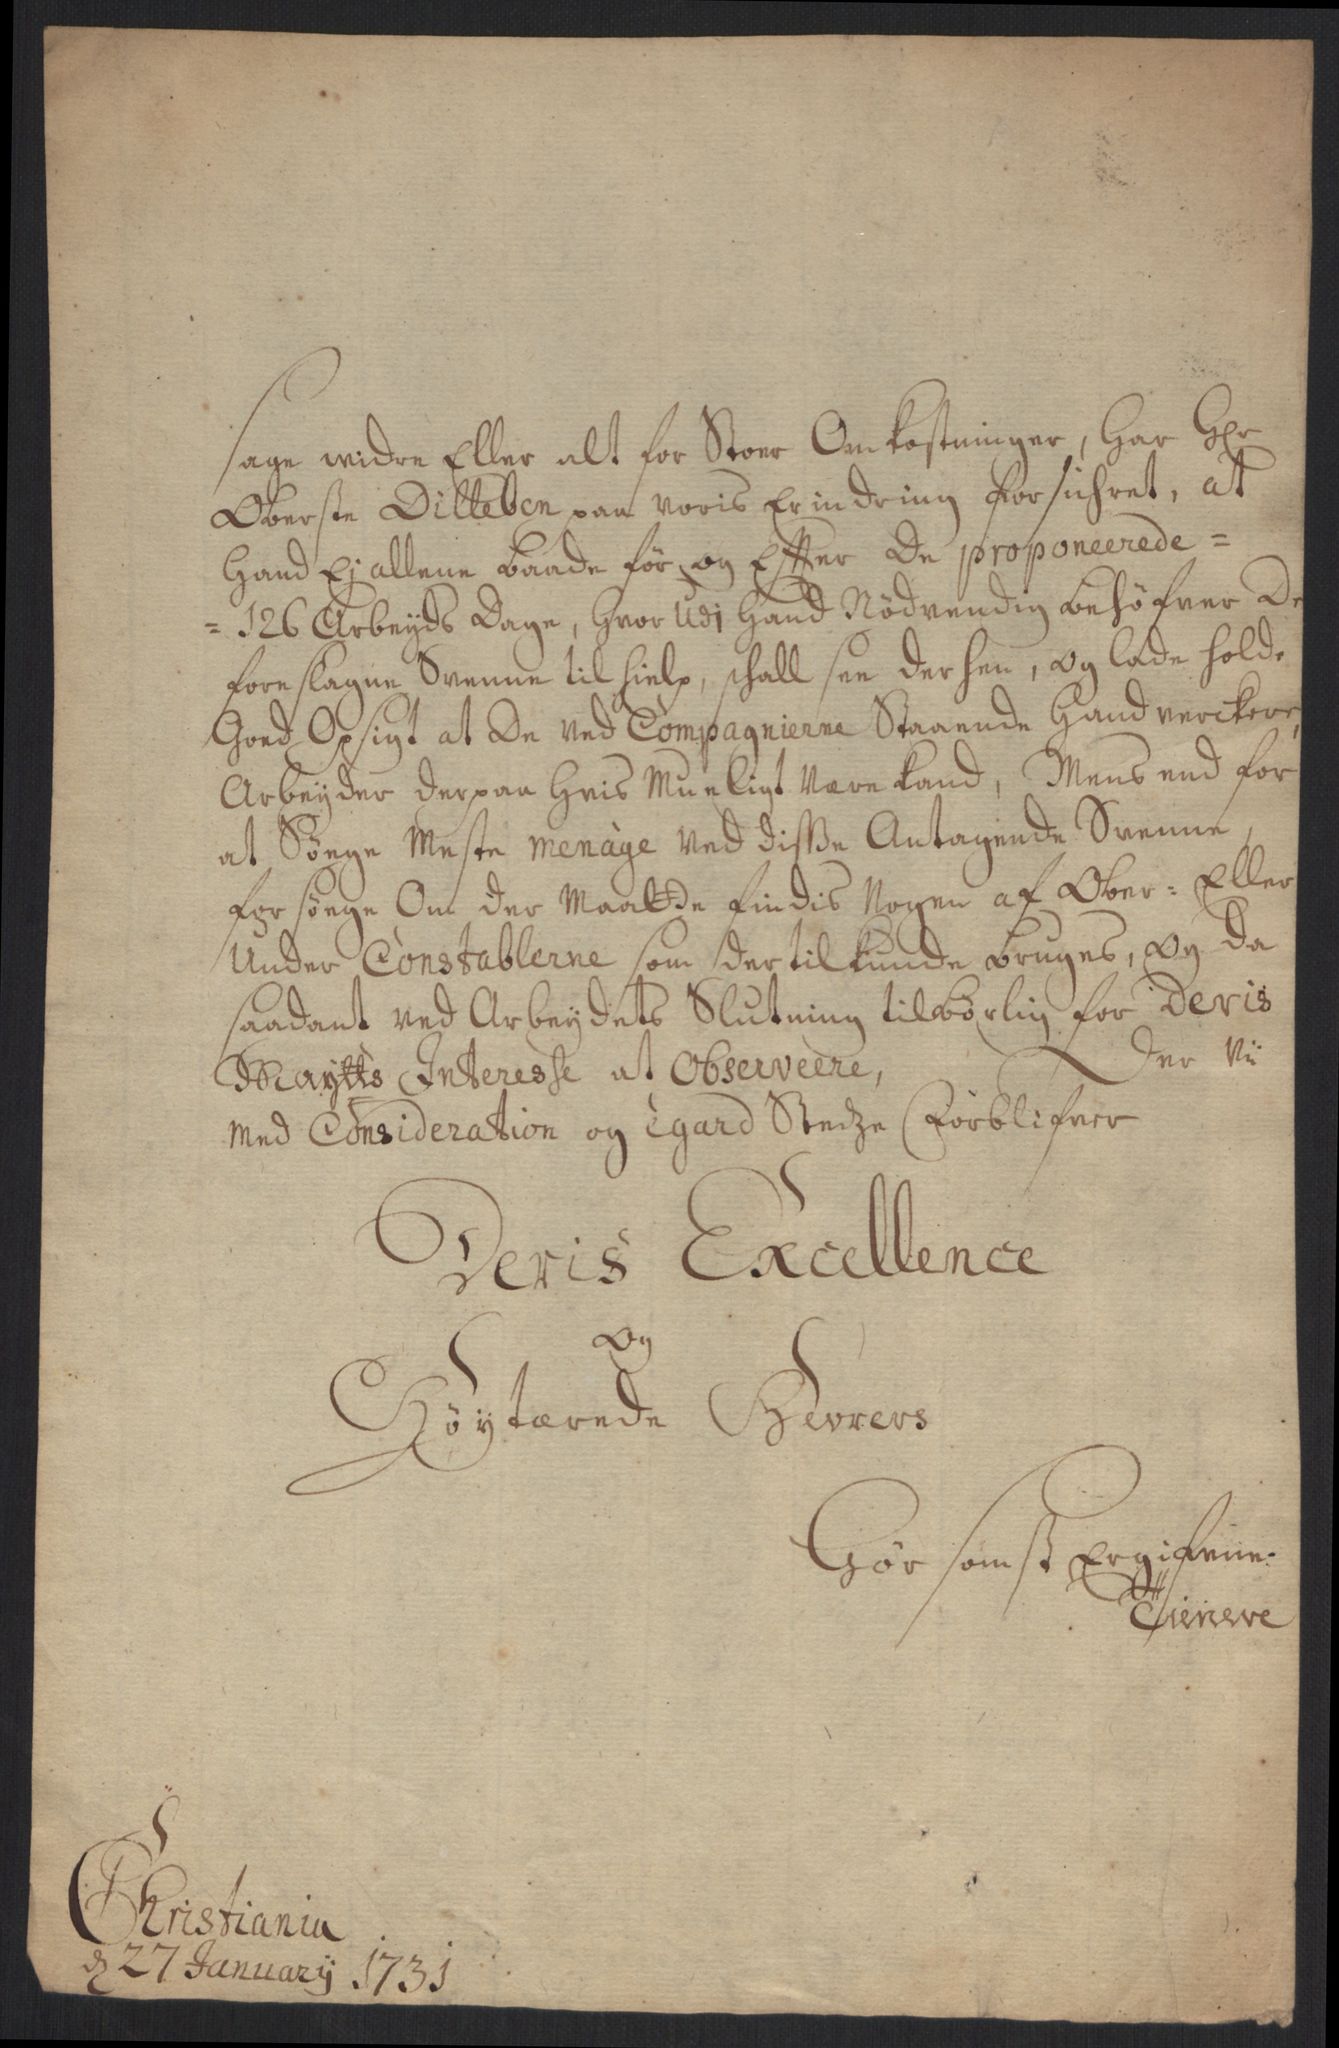 sage widre Eller alt for Stoer Omkostninger, Har Hr
Oberste Ditleben paa voris Erindring forsichret, at
Hand Ej allene baade før og Effter De proponeerede =
= 126 Arbeyds Dage, hvor Udj Hand Nödvendig behöfver De
foreslagne Svenne til hielp, schall see derhen, og lade holde
Goed Opsigt at De ved Compagnierne Staaende Handverckere,
Arbeyder derpaa hvis Mueligt være kand, Mens end for
at Söege Meste menàge ved disse Antagende Svenne,
forsöege Om der Maatte findis Nogen af Ober= Eller
Under Constablerne som dertil kunde bruges, og da
saadant ved Arbeydets Slutning tilbørlig for Deris
Maÿtts Interesse at Observeere, Der Vii
med Consideration og Egard Stedze forblifver
Deris Excellence
og
Höÿtærede Herrers
Hør somst Ergifvene
Tienere
Christiania
d 27 Januarij 1731